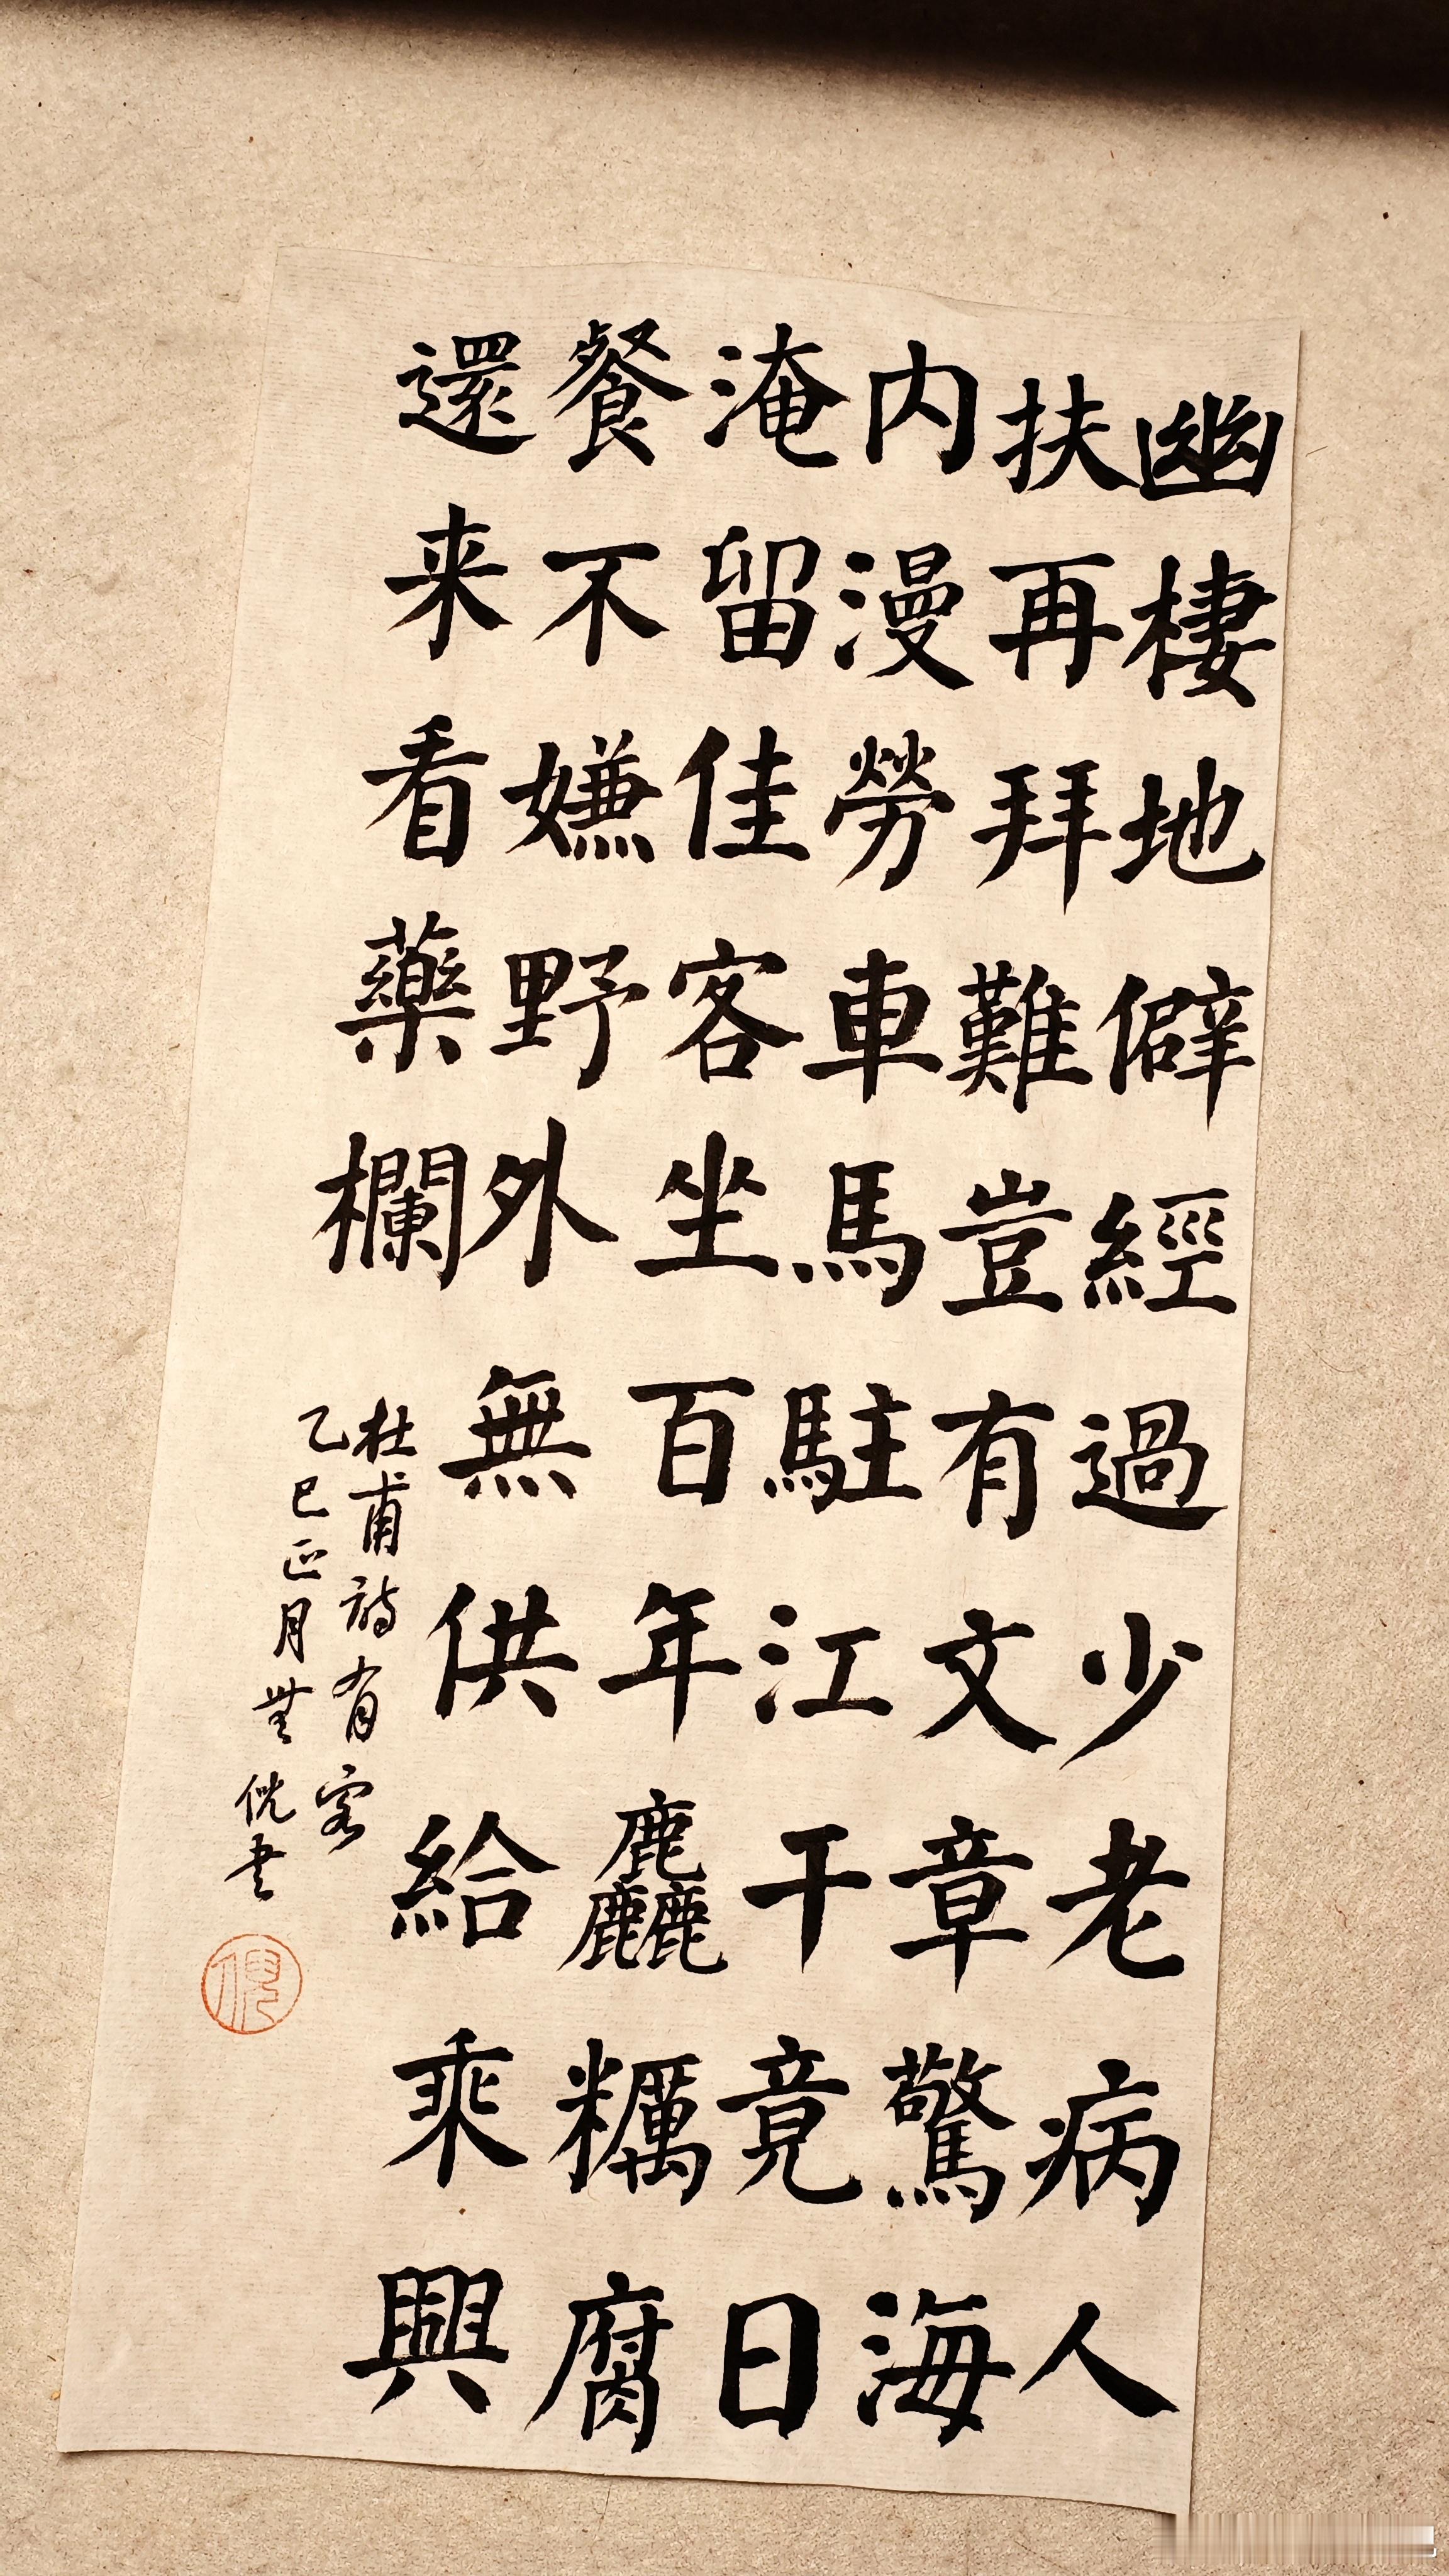 幽棲地僻經過少老病人
扶再拜難豈有文章驚海
内漫勞車馬駐江干竟日
淹留佳客坐百年麤糲腐
餐不嫌野外無供給乘興
還来看藥欄
杜甫詩有客
乙巳正月無倪書
倪